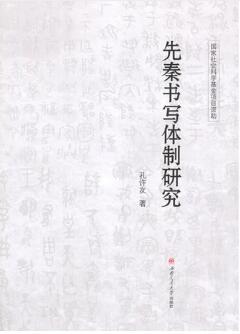 国家社会科学基金项目资助
先秦书写体制研究
孔许友 著
西南交通大学出版社